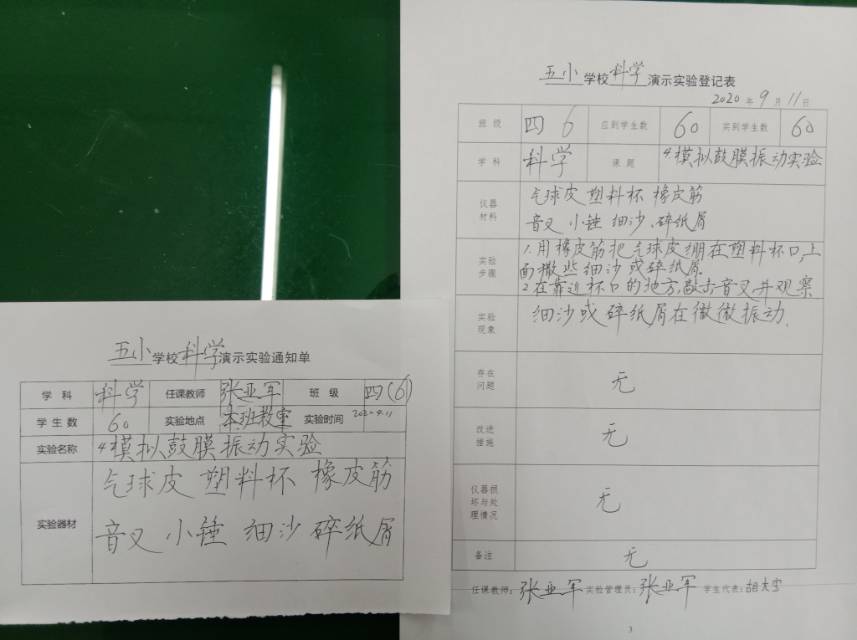 五小学校科学演示实验通知单
学科 科学 任课教师 张亚军 班级 四(6)
学生数 60 实验地点 本班教室 实验时间 2020.9.11
实验名称 4模拟鼓膜振动实验
实验器材 气球皮 塑料杯 橡皮筋
音叉 小锤 细沙 碎纸屑
五小学校科学演示实验登记表
2020年9月11日
班级 四 6 应到学生数 60 实到学生数 60
学科 科学 课题 4.模拟鼓膜振动实验
仪器材料 气球皮 塑料杯 橡皮筋
音叉 小锤 细沙、碎纸屑
实验步骤 1.用橡皮筋把气球皮绷在塑料杯口,上
面撒些细沙或碎纸屑.
2.在靠近杯口的地方敲击音叉,并观察
实验现象 细沙或碎纸屑在微微振动.
存在问题 无
改进措施 无
仪器损坏与处理情况 无
备注 无
任课教师:张亚军 实验管理员:张亚军 学生代表:
3